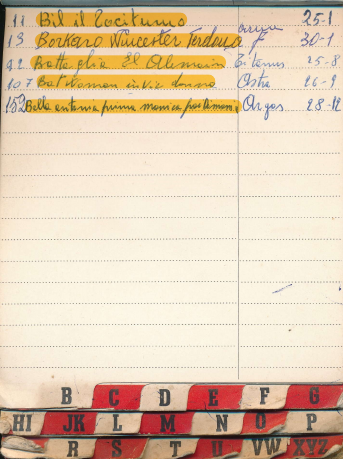 11 Bil il Taciturno 25-1
13 Borkaro Wincester Jerduga 30-1
42 Battaglia El Alamein Titanus 25-8
107 Bat Woman inviz donna Astra 26-9
152 Bella antonia prima monica poi dimonia Argos 28-12
B C D E F G
HI JK L M N O P
R S T U VW XYZ